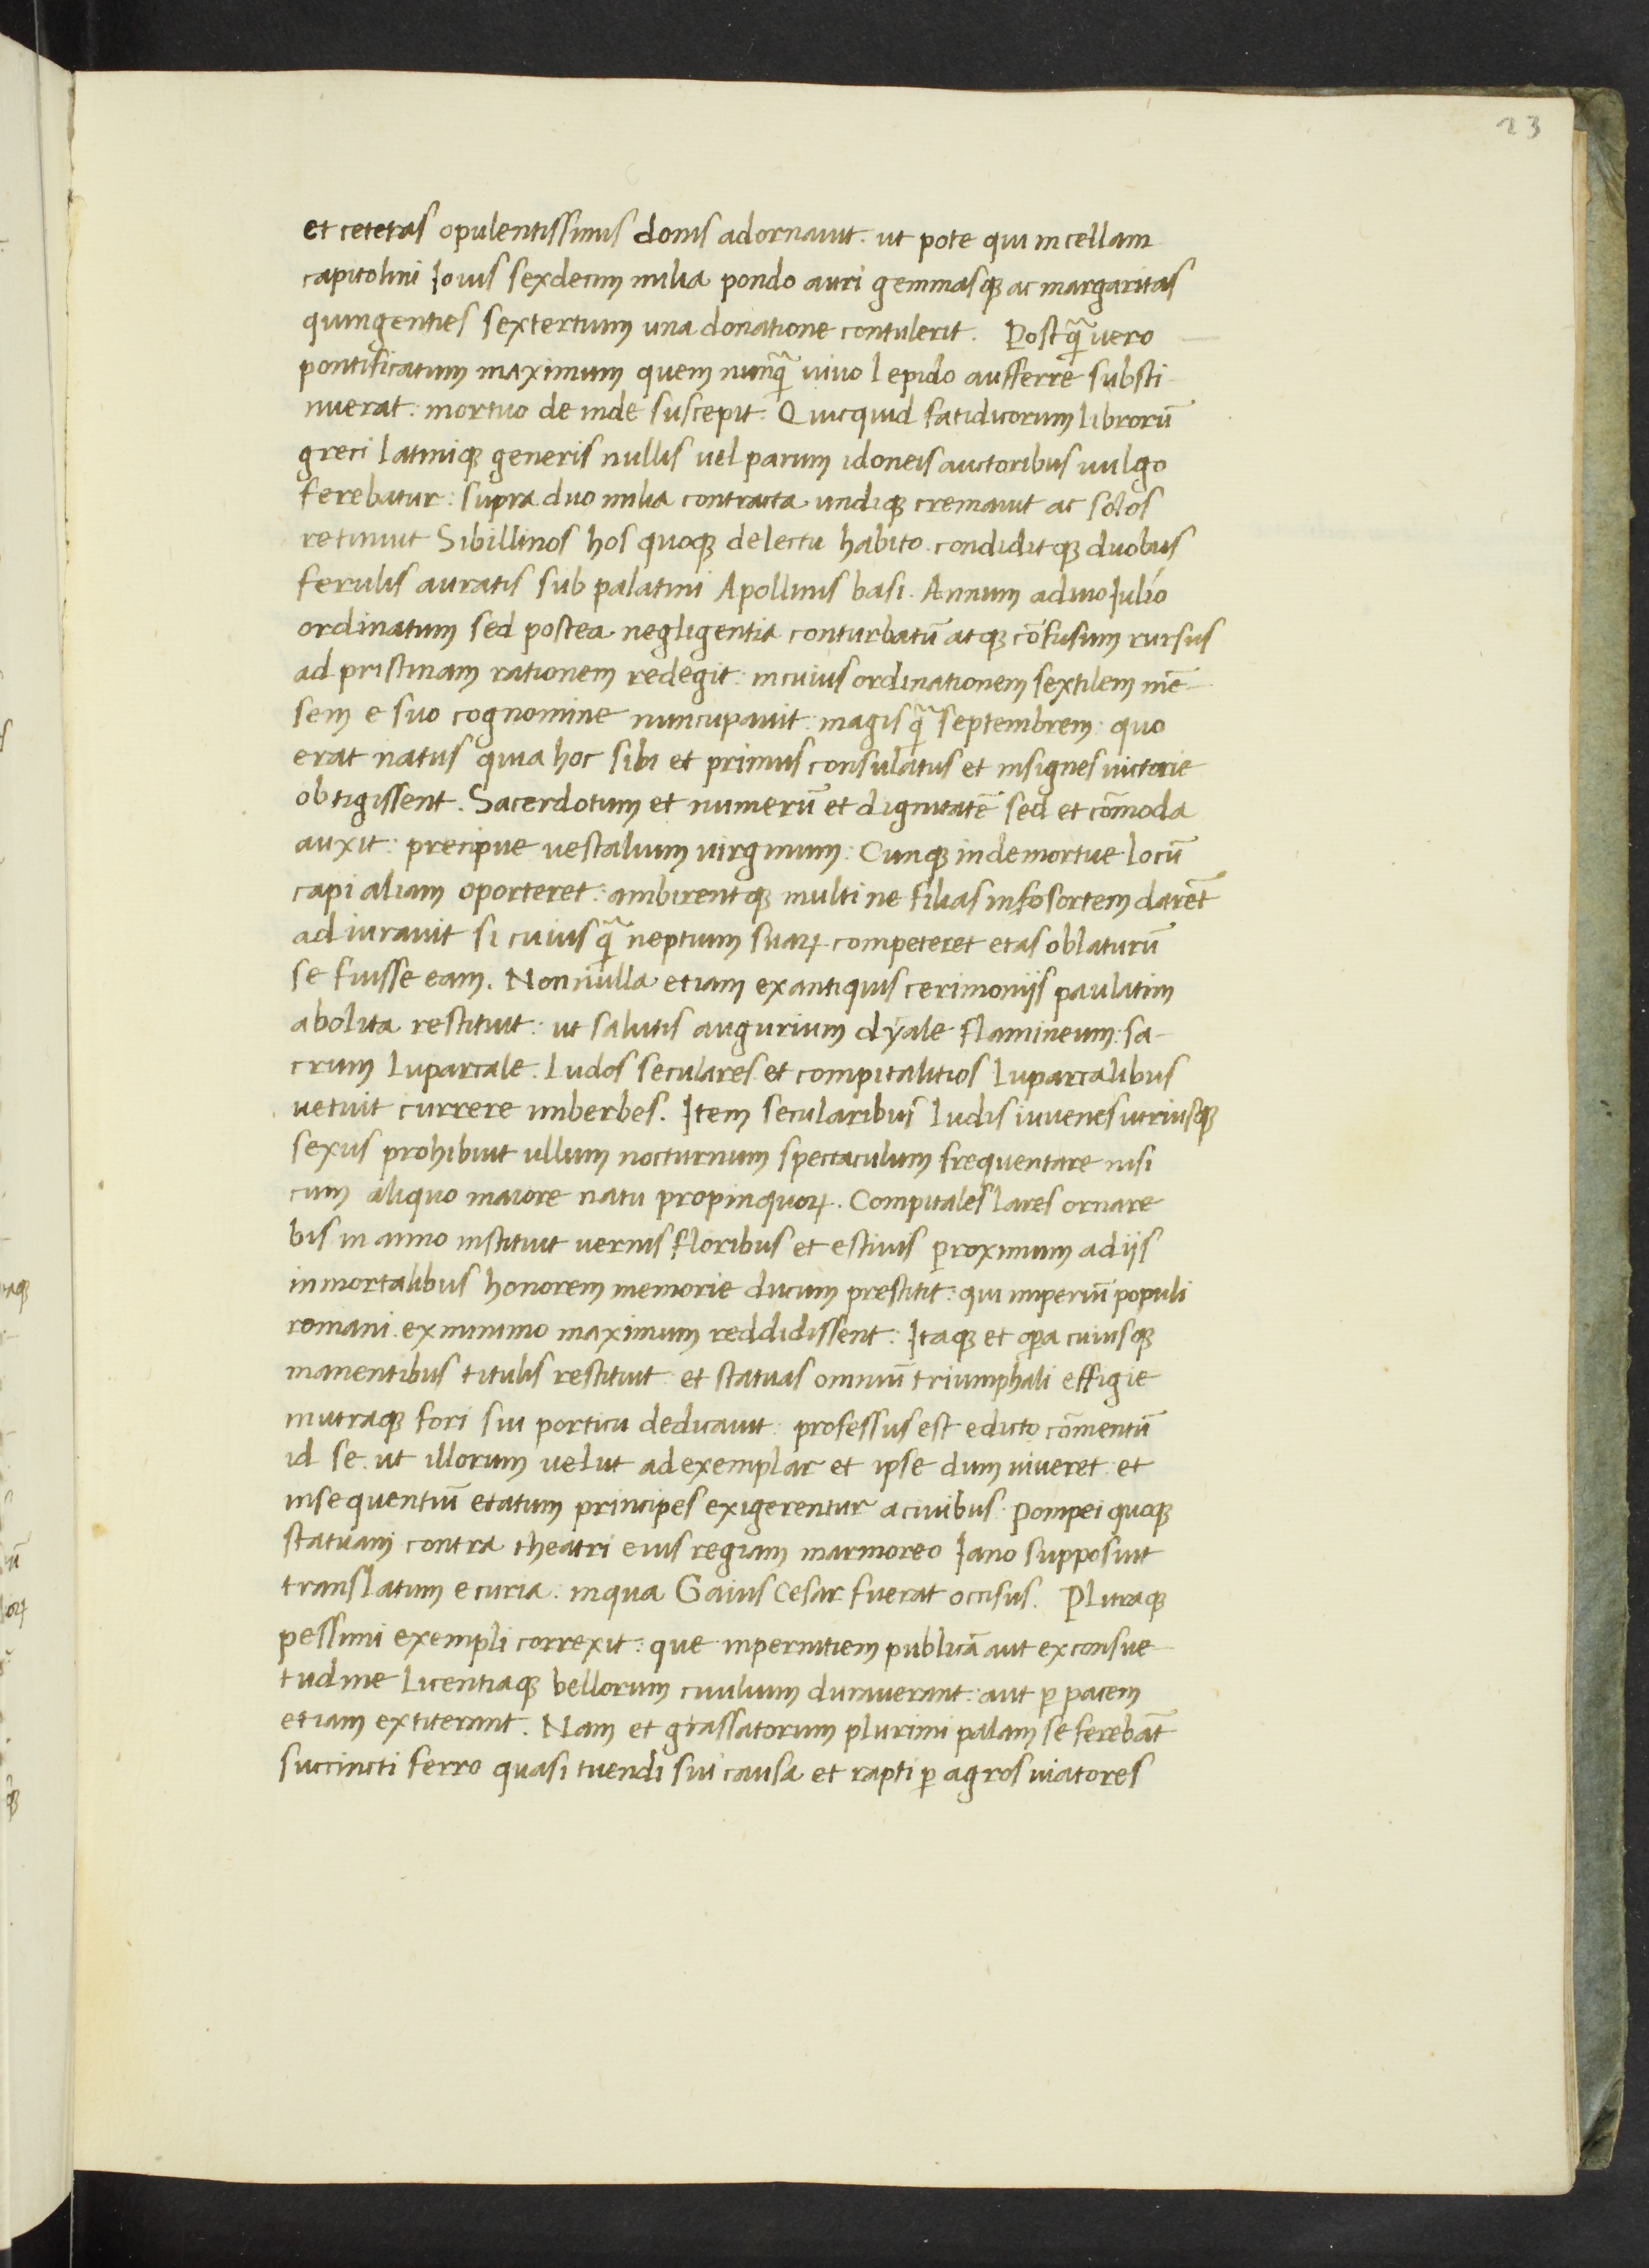 23
et ceteras opulentissimis donis adornauit. ut pote qui in cellam
capitolini Iouis sexdecim milia pondo auri gemmasqꝫ ac margaritas
quingenties sextertium una donatione contulerit. Postq̃ uero
pontificatum maximum quem nunq̃ uiuo lepido aufferre substi-
nuerat: mortuo de inde suscepit. Quicquid fatidicorum librorũ
greci latiniqꝫ generis nullis uel parum idoneis auctoribus uulgo
ferebatur: supra duo milia contracta undiqꝫ cremauit ac solos
retinuit Sibillinos hos quoqꝫ delectu habito condiditqꝫ duobus
ferulis auratis sub palatini Apollinis basi. Annum adiuo Iulio
ordinatum sed postea negligentia conturbatũ atqꝫ cõfusum rursus
ad pristinam rationem redegit: in cuius ordinationem sextilem mẽ-
sem e suo cognomine nuncupauit: magis q̃ septembrem: quo
erat natus quia hoc sibi et primus consulatus et insignes uictorie
obtigissent. Sacerdotum et numerũ et dignitatẽ sed et cõmoda
auxit: precipue uestalium uirginum: Cunqꝫ in demortue locũ
capi aliam oporteret: ambirentqꝫ multi ne filias in sortem darẽt
adiurauit si cuiusq̃ neptium suaꝝ competeret etas oblaturũ
se fuisse eam. Non nulla etiam ex antiquis cerimoniis paulatim
abolita restituit: ut salutis augurium dÿale flamineum: sa-
crum luparcale. ludos seculares et compitalitios luparcalibus
uetuit currere imberbes. Item secularibus ludis iuuenes utriusqꝫ
sexus prohibuit ullum nocturnum spectaculum frequentare nisi
cum aliquo maiore natu propinquoꝝ. Compitales lares ornare
bis in anno instituit uernis floribus et estiuis proximum a diis
inmortalibus honorem memorie ducum prestitit: qui imperiũ populi
romani ex minimo maximum reddidissent: Itaqꝫ et oꝑa cuiusqꝫ
manentibus titulis restituit: et statuas omniũ triumphali effigie
in utraqꝫ fori sui porticu dedicauit: professus est edicto cõmentũ
id se. ut illorum uelut ad exemplar et ipse dum uiueret: et
insequentiũ etatum principes exigerentur a ciuibus. Pompei quoqꝫ
statuam contra theatri eius regiam marmoreo Iano supposuit
translatum e curia: in qua Gaius Cesar fuerat occisus. Pluraqꝫ
pessimi exempli correxit: que in pernitiem publicã aut ex consue-
tudine licentiaqꝫ bellorum ciuilium durauerant: aut ꝑ pacem
etiam extiterant. Nam et grassatorum plurimi palam se ferebãt
succincti ferro quasi tuendi sui causa et rapti ꝑ agros uiatores